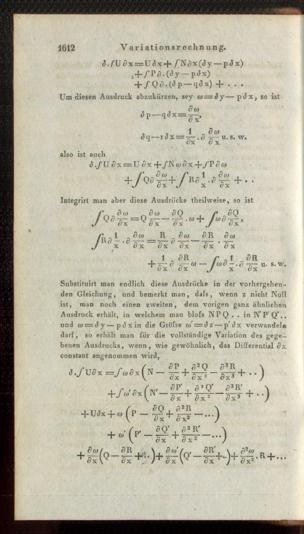 1612 Variationsrechnung.
∂.∫U∂x=U∂x+∫N∂x(∂y—p∂x)
+∫P∂.(∂y—p∂x)
+∫Q∂.(∂p—q∂x) + ...
Um diesen Ausdruck abzukürzen, sey ω=∂y—p∂x, so ist
∂p—q∂x=∂ω/∂x,
∂q—r∂x=1/∂x.∂ ∂ω/∂x u. s. w.
also ist auch
∂.∫U∂x=U∂x+∫Nω∂x+∫P∂ω
+∫Q∂ ∂ω/∂x+∫R∂ 1/x.∂ ∂ω/∂x + . .
Integrirt man aber diese Ausdrücke theilweise, so ist
∫Q∂ ∂ω/∂x=Q ∂ω/∂x—∂Q/∂x.ω+∫ω∂ ∂Q/∂x,
∫R∂ 1/x.∂ ∂ω/∂x=R/∂x ∂ ∂ω/∂x—∂R/∂x.∂ω/∂x
+1/∂x ∂ ∂R/∂x ω—∫ω∂ 1/x.∂ ∂R/∂x u. s. w.
Substituirt man endlich diese Ausdrücke in der vorhergehen-
den Gleichung, und bemerkt man, daſs, wenn z nicht Null
ist, man noch einen zweiten, dem vorigen ganz ähnlichen
Ausdruck erhält, in welchem man bloſs NPQ . . in N'P'Q'. .
und ω=∂y—p∂x in die Gröſse ω'=∂z—p'∂x verwandeln
darf, so erhält man für die vollständige Variation des gege-
benen Ausdrucks, wenn, wie gewöhnlich, das Differential ∂x
constant angenommen wird,
∂.∫U∂x=∫ω∂x(N—∂P/∂x+∂²Q/∂x²—∂³R/∂x³+ . .)
+∫ω'∂x(N'—∂P'/∂x+∂²Q'/∂x²—∂³R'/∂x³+ . .)
+U∂x+ω(P—∂Q/∂x+∂²R/∂x²—...)
+ω'(P'—∂Q'/∂x+∂²R'/∂x²—...)
+∂ω/∂x(Q—∂R/∂x+..)+∂ω'/∂x(Q'—∂R'/∂x+..)+∂²ω/∂x².R+...